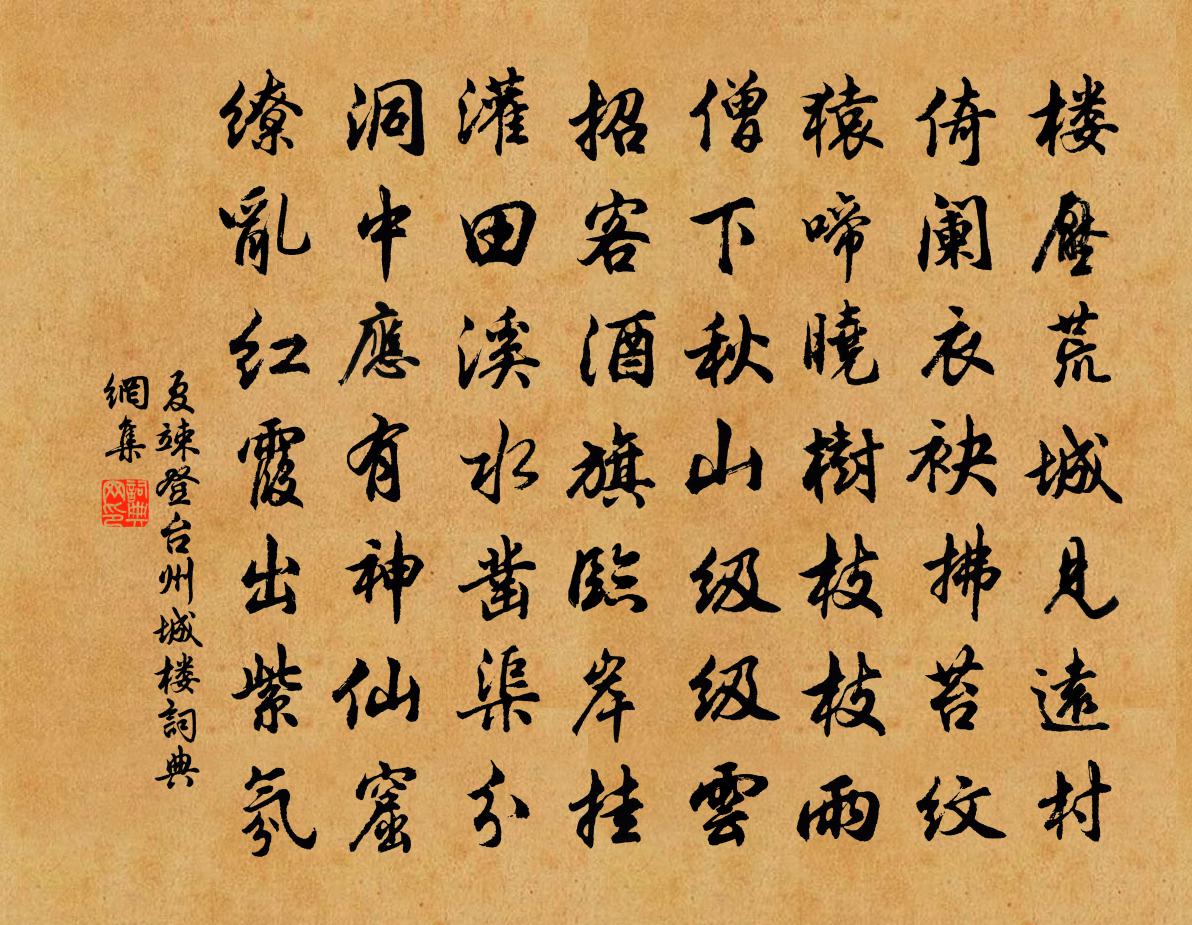 楼壓荒城見遠村
倚阑衣袂拂苔纹
猿啼曉樹枝枝雨
僧下秋山级级雲
招客酒旗臨岸挂
灌田溪水凿渠分
洞中應有神仙窟
缭亂红霞出紫氛
夏竦登台州城楼詞典
網集
詞典
网印